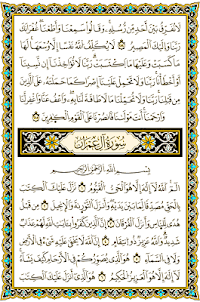 لَا نُفَرِّقُ بَيْنَ أَحَدٍ مِّن رُّسُلِهِ وَقَالُوا سَمِعْنَا وَأَطَعْنَا غُفْرَانَكَ
رَبَّنَا وَإِلَيْكَ الْمَصِيرُ لَا يُكَلِّفُ اللَّهُ نَفْسًا إِلَّا وُسْعَهَا لَهَا
مَا كَسَبَتْ وَعَلَيْهَا مَا اكْتَسَبَتْ رَبَّنَا لَا تُؤَاخِذْنَا إِن نَّسِينَا
أَوْ أَخْطَأْنَا رَبَّنَا وَلَا تَحْمِلْ عَلَيْنَا إِصْرًا كَمَا حَمَلْتَهُ عَلَى الَّذِينَ
مِن قَبْلِنَا رَبَّنَا وَلَا تُحَمِّلْنَا مَا لَا طَاقَةَ لَنَا بِهِ وَاعْفُ عَنَّا وَاغْفِرْ لَنَا
وَارْحَمْنَا أَنتَ مَوْلَانَا فَانصُرْنَا عَلَى الْقَوْمِ الْكَافِرِينَ
سُورَةُ آلِ عِمْرَانَ
بِسْمِ اللَّهِ الرَّحْمَٰنِ الرَّحِيمِ
الٓمٓ اللَّهُ لَا إِلَٰهَ إِلَّا هُوَ الْحَيُّ الْقَيُّومُ نَزَّلَ عَلَيْكَ الْكِتَٰبَ
بِالْحَقِّ مُصَدِّقًا لِّمَا بَيْنَ يَدَيْهِ وَأَنزَلَ التَّوْرَىٰةَ وَالْإِنجِيلَ مِن قَبْلُ
هُدًى لِّلنَّاسِ وَأَنزَلَ الْفُرْقَانَ إِنَّ الَّذِينَ كَفَرُوا بِـَٔايَٰتِ اللَّهِ لَهُمْ عَذَابٌ
شَدِيدٌ وَاللَّهُ عَزِيزٌ ذُو انتِقَامٍ إِنَّ اللَّهَ لَا يَخْفَىٰ عَلَيْهِ شَيْءٌ فِي الْأَرْضِ
وَلَا فِي السَّمَاءِ هُوَ الَّذِي يُصَوِّرُكُمْ فِي الْأَرْحَامِ كَيْفَ يَشَاءُ
لَا إِلَٰهَ إِلَّا هُوَ الْعَزِيزُ الْحَكِيمُ هُوَ الَّذِي أَنزَلَ عَلَيْكَ الْكِتَٰبَ